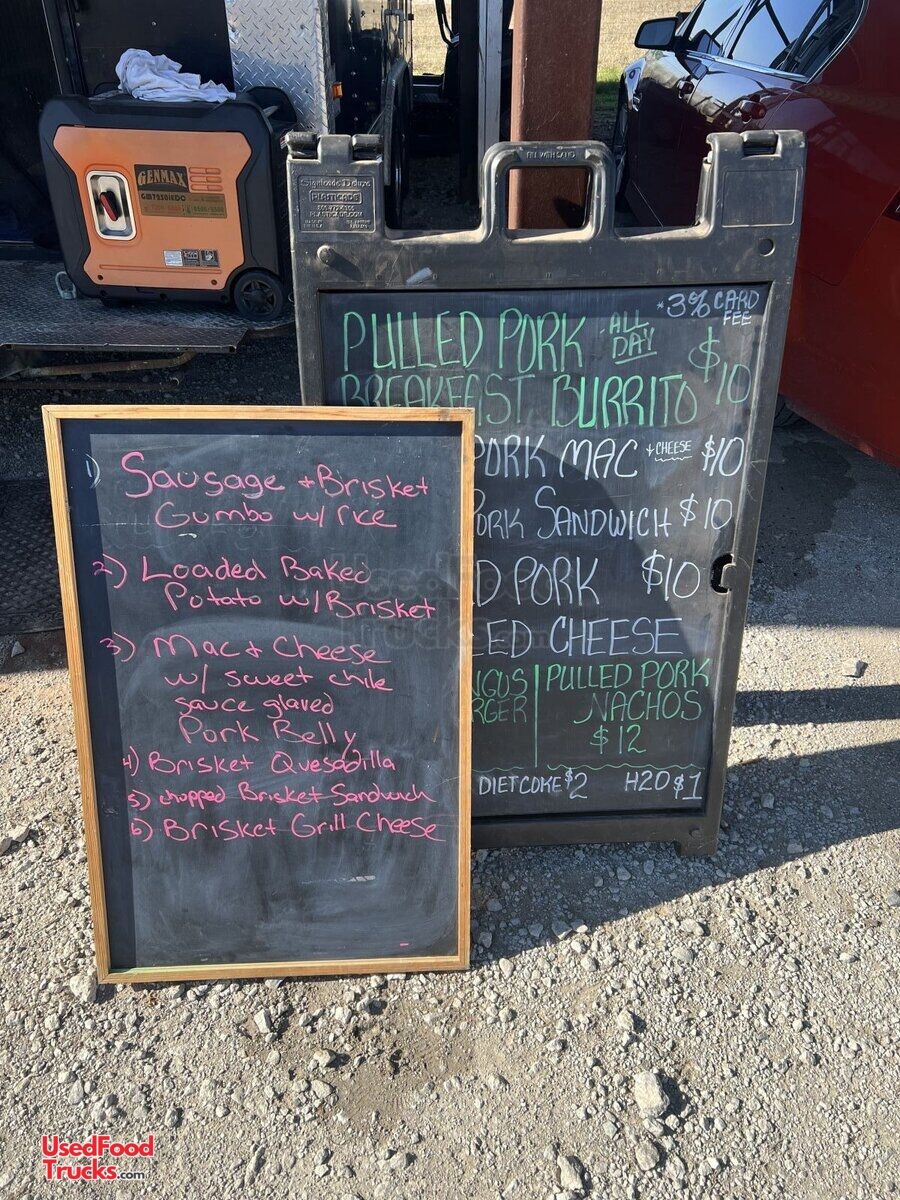 GENMAX
GM7250iEDC
Signicade Deluxe
PLASTICADE
PLASTICADE.COM
FILL WITH SAND
*3% CARD
FEE
PULLED PORK ALL
DAY
BREAKFAST BURRITO $10
PORK MAC + CHEESE $10
PORK SANDWICH $10
D PORK $10
ED CHEESE
NGUS
RGER
PULLED PORK
NACHOS
$12
DIET COKE $2 H2O $1
1) Sausage + Brisket
Gumbo w/ rice
2) Loaded Baked
Potato w/ Brisket
3) Mac & Cheese
w/ sweet chile
sauce glaved
Pork Belly
4) Brisket Quesadilla
5) chopped Brisket Sandwich
6) Brisket Grill Cheese
UsedFood
Trucks.com
UsedFood
Trucks.com